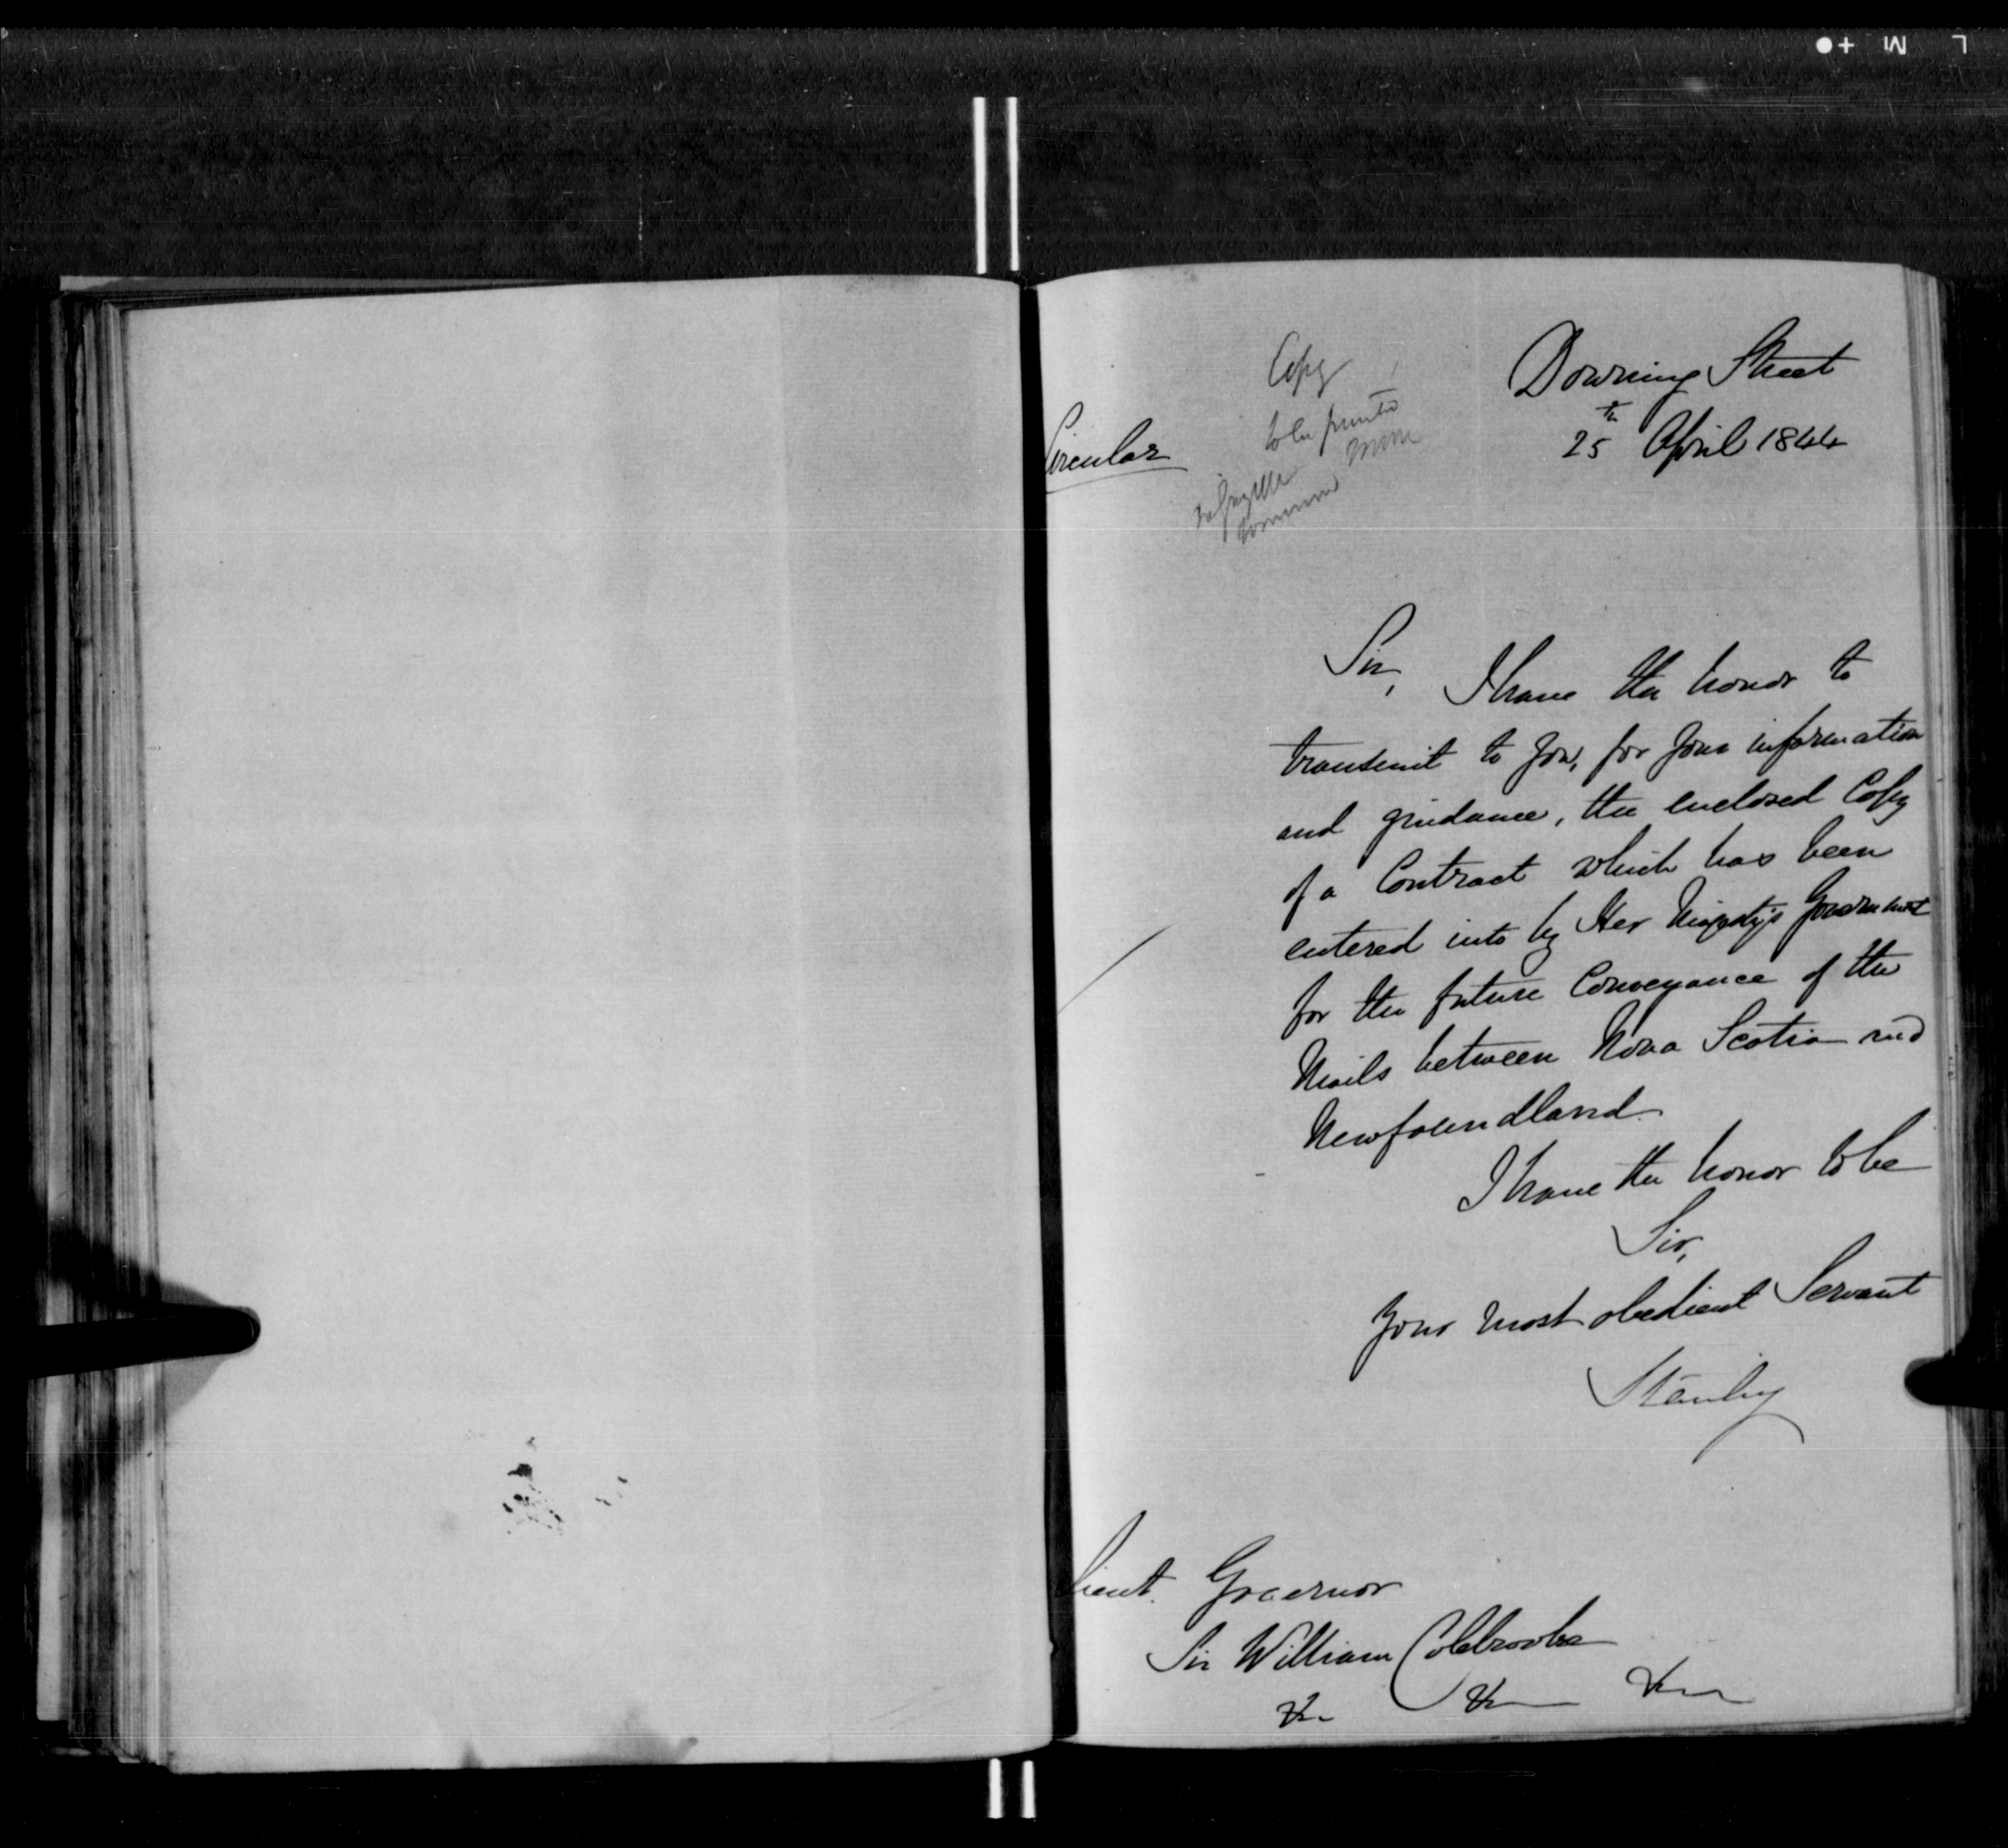 Downing Street
25th April 1844
Circular
Copy
to be printed
Sir,
I have the honor to
transmit to you, for your information
and guidance, the enclosed Copy
of a Contract which has been
entered into by Her Majesty's Government
for the future Conveyance of the
Mails between Nova Scotia and
Newfoundland.
I have the honor to be
Sir,
Your most obedient Servant
Stanley
Lieut. Governor
Sir William Colebrooke
&c &c &c